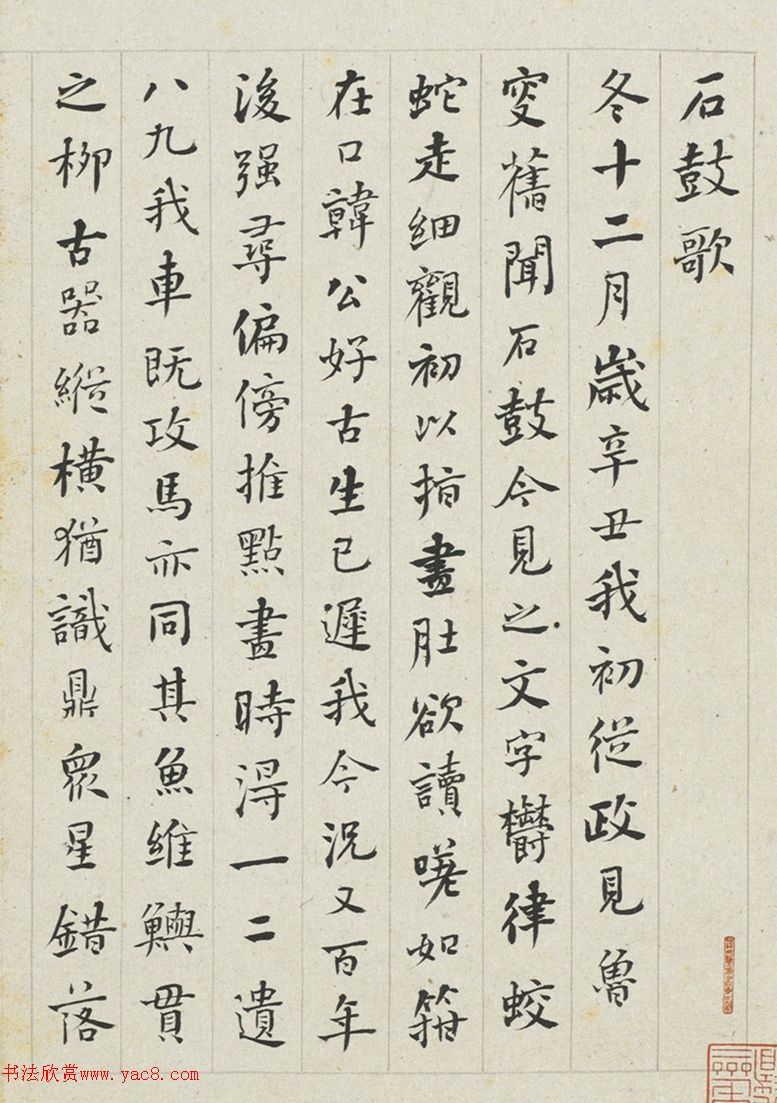 石鼓歌
冬十二月歲辛丑我初從政見魯
叟舊聞石鼓今見之文字欝律蛟
蛇走細觀初以指畫肚欲讀嗟如箝
在口韓公好古生已遲我今況又百年
後强尋偏傍推點畫時得一二遺
八九我車既攻馬亦同其魚維鱮貫
之柳古器縱橫猶識鼎衆星錯落
书法欣赏www.yac8.com